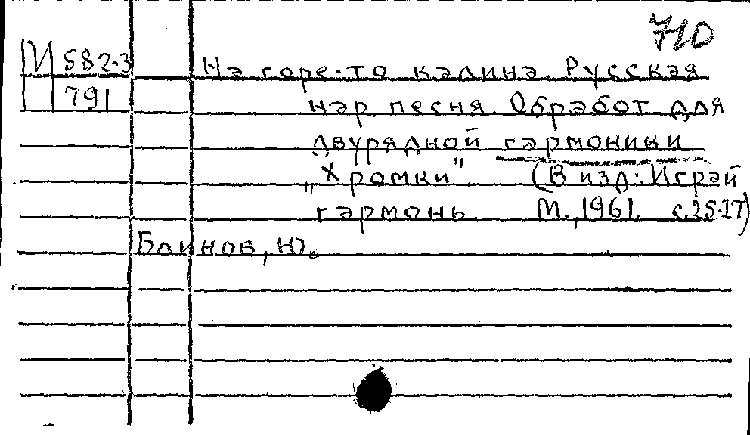 710
И 582-3
791
На горе-то калина. Русская
нар песня Обработ для
двурядной гармоники
„Хромки" (В изд: Играй
гармонь М., 1961. с.25-27)
Блинов, Ю.